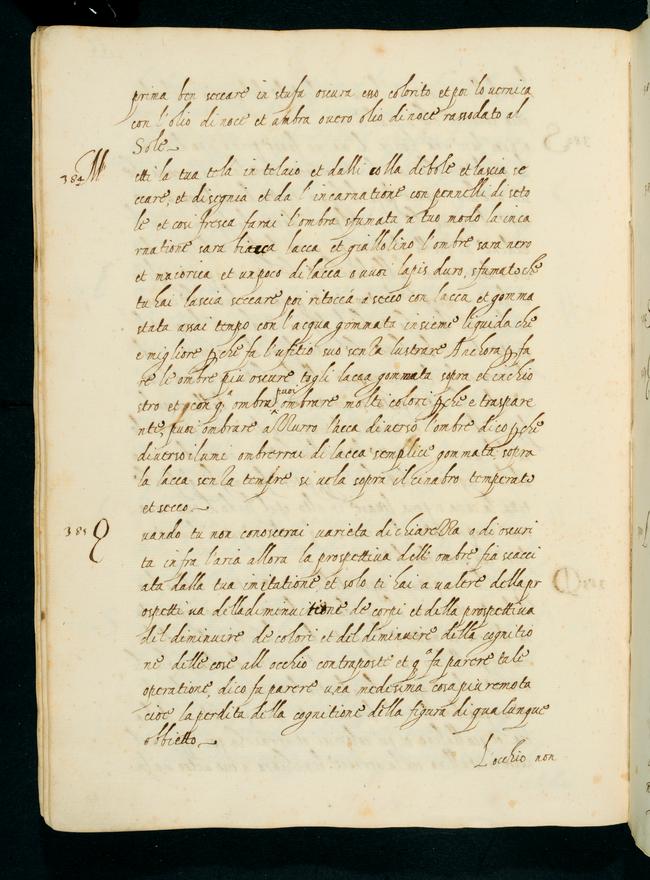 prima ben seccare in stufa oscura esso colorito et poi lo vernica
con l'olio di noce et ambra overo olio di noce rassodato al
Sole
384 Metti la tua tela in telaio et dalli colla debole et lascia se
ccare, et disegnia et da l'incarnatione con pennelli di seto
le et cosi fresca farai l'ombra sfumata a tuo modo la inca
rnatione sara biacca lacca et giallolino l'ombre sara nero
et maiorica et un poco di lacca o vuoi lapis duro, sfumato che
tu hai lascia seccare poi ritocca a secco con lacca et gomma
stata assai tempo con l'acqua gommata insieme liquida che
e migliore p che fa l'ufitio suo senza lustrare Anchora p fa
re le ombre piu oscure togli lacca gommata sopra et inchio
stro et con qª ombra puoi ombrare molti colori p che e traspare
nte, puoi ombrare azzurro lacca diverso l'ombre dico p che
diversi lumi ombrerrai di lacca semplice gommata sopra
la lacca senza tempre si vela sopra il cinabro temperato
et secco
385 Quando tu non conoscerai varieta di chiarezza o di oscuri
ta infra l'aria allora la prospettiva dell' ombre fia scacci
ata dalla tua imitatione, et solo ti hai a valere della pr
ospettiva della diminuitione de corpi et della prospettiva
del diminuire de colori et del diminuire della cognitio
ne delle cose all occhio contraposte et qª fa parere tale
operatione, dico fa parere una medesima cosa piu remota
cioe la perdita della cognitione della figura di qualunque
obbietto
L'occhio non